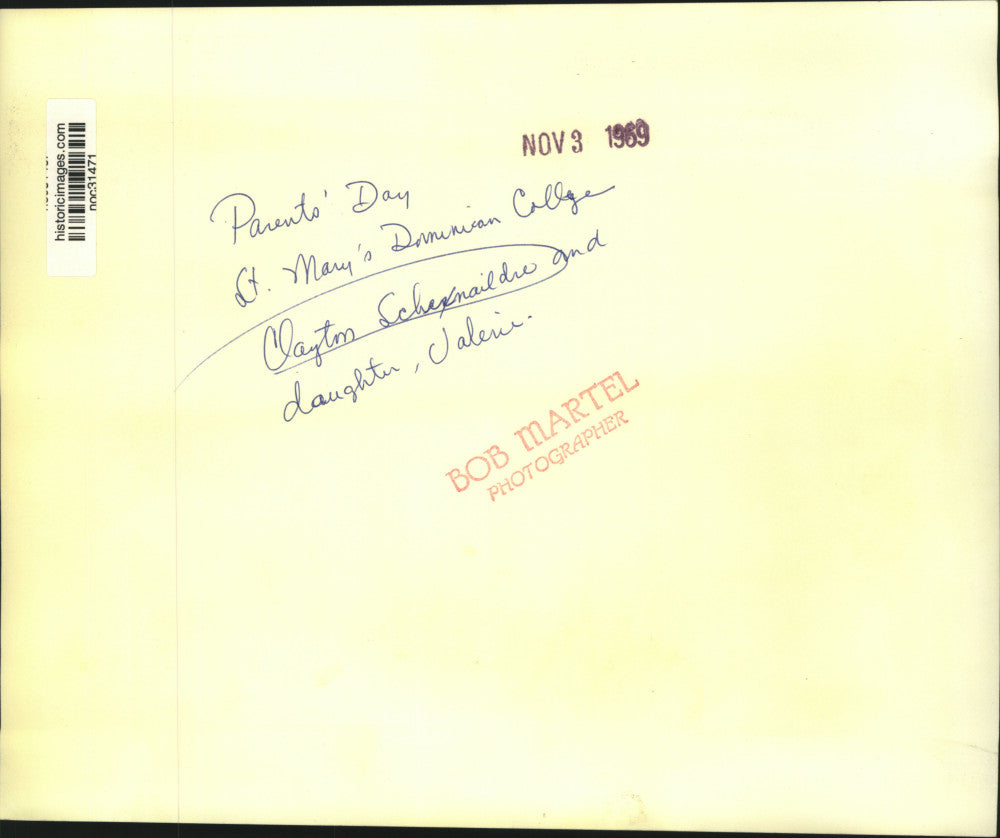 historicimages.com
noc31471
NOV 3 1969
Parents' Day
St. Mary's Dominican College
Clayton Schexnaildre and
daughter, Valerie.
BOB MARTEL
PHOTOGRAPHER